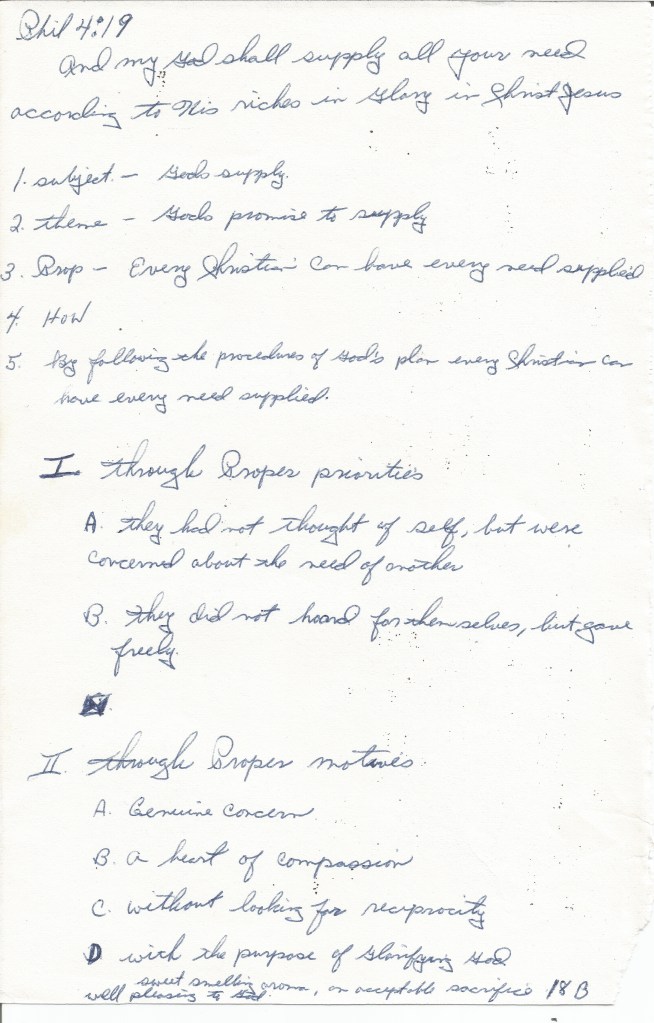 Phil 4:19
And my God shall supply all your need
according to His riches in Glory in Christ Jesus
1. subject. – Gods supply.
2. theme – Gods promise to supply
3. Prop – Every Christian can have every need supplied
4. HOW
5. By following the procedures of God's plan every Christian can
have every need supplied.
I through Proper priorities
A. they had not thought of self, but were
concerned about the need of another
B. they did not hoard for themselves, but gave
freely.
II. through Proper motives
A. Genuine concern
B. a heart of compassion
C. without looking for reciprocity
D with the purpose of Glorifying God
sweet smelling aroma, an acceptable sacrifice 18 B
well pleasing to God.